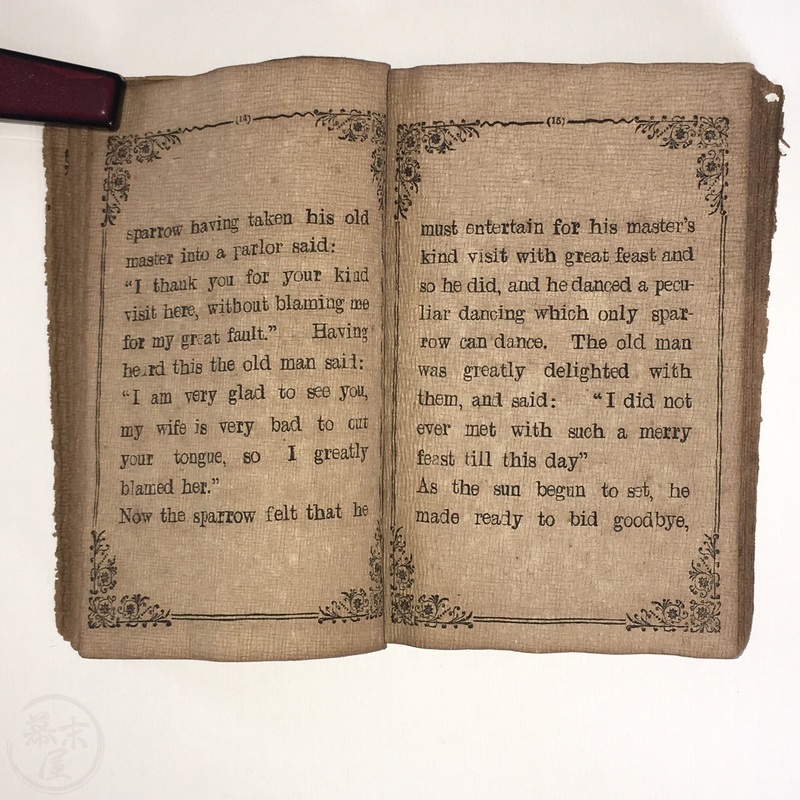 (14)
sparrow having taken his old
master into a parlor said:
“I thank you for your kind
visit here, without blaming me
for my great fault.” Having
heard this the old man said:
“I am very glad to see you,
my wife is very bad to cut
your tongue, so I greatly
blamed her.”
Now the sparrow felt that he
(15)
must entertain for his master's
kind visit with great feast and
so he did, and he danced a pecu-
liar dancing which only spar-
row can dance. The old man
was greatly delighted with
them, and said: “I did not
ever met with such a merry
feast till this day”
As the sun begun to set, he
made ready to bid goodbye,
幕末屋